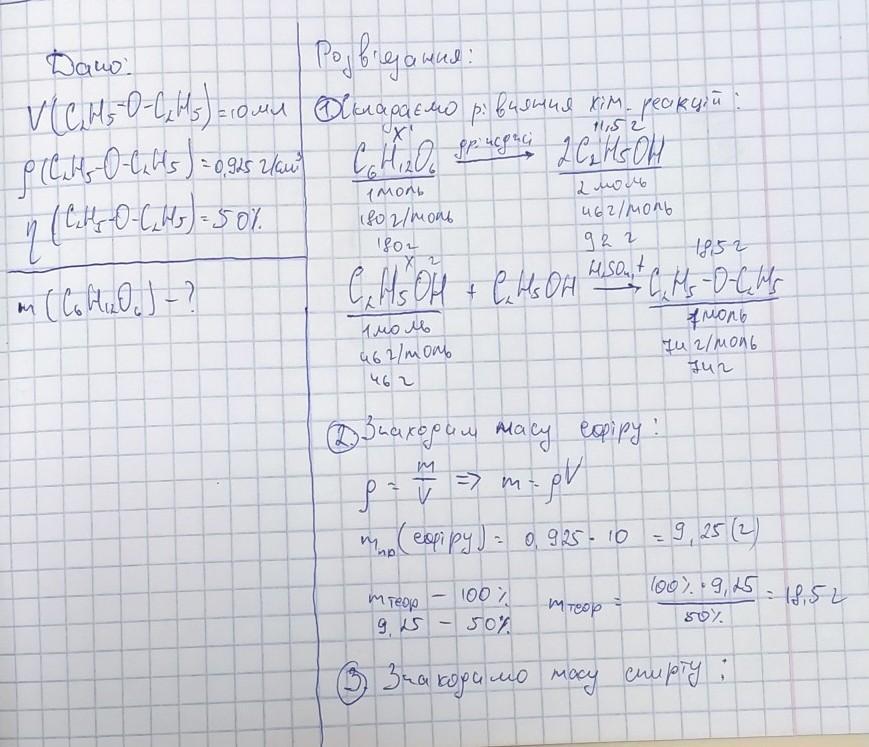 Дано:
V(C₂H₅-O-C₂H₅)=10мл
ρ(C₂H₅-O-C₂H₅)=0,925 г/см³
η(C₂H₅-O-C₂H₅)=50%
m(C₆H₁₂O₆)-?
Розв'язання:
① Складаємо рівняння хім. реакцій:
x г 11,5 г
C₆H₁₂O₆ дріжджі → 2C₂H₅OH
1моль 2моль
180г/моль 46г/моль
180г 92 г
x г 18,5 г
C₂H₅OH + C₂H₅OH H₂SO₄, t → C₂H₅-O-C₂H₅
1моль 1моль
46г/моль 74г/моль
46 г 74г
② Знаходим масу ефіру:
ρ = m/V => m = ρV
mпр(ефіру) = 0,925 · 10 = 9,25(г)
mтеор - 100% mтеор = 100% · 9,25 / 50% = 18,5 г
9,25 - 50%
③ Знаходимо масу спирту: